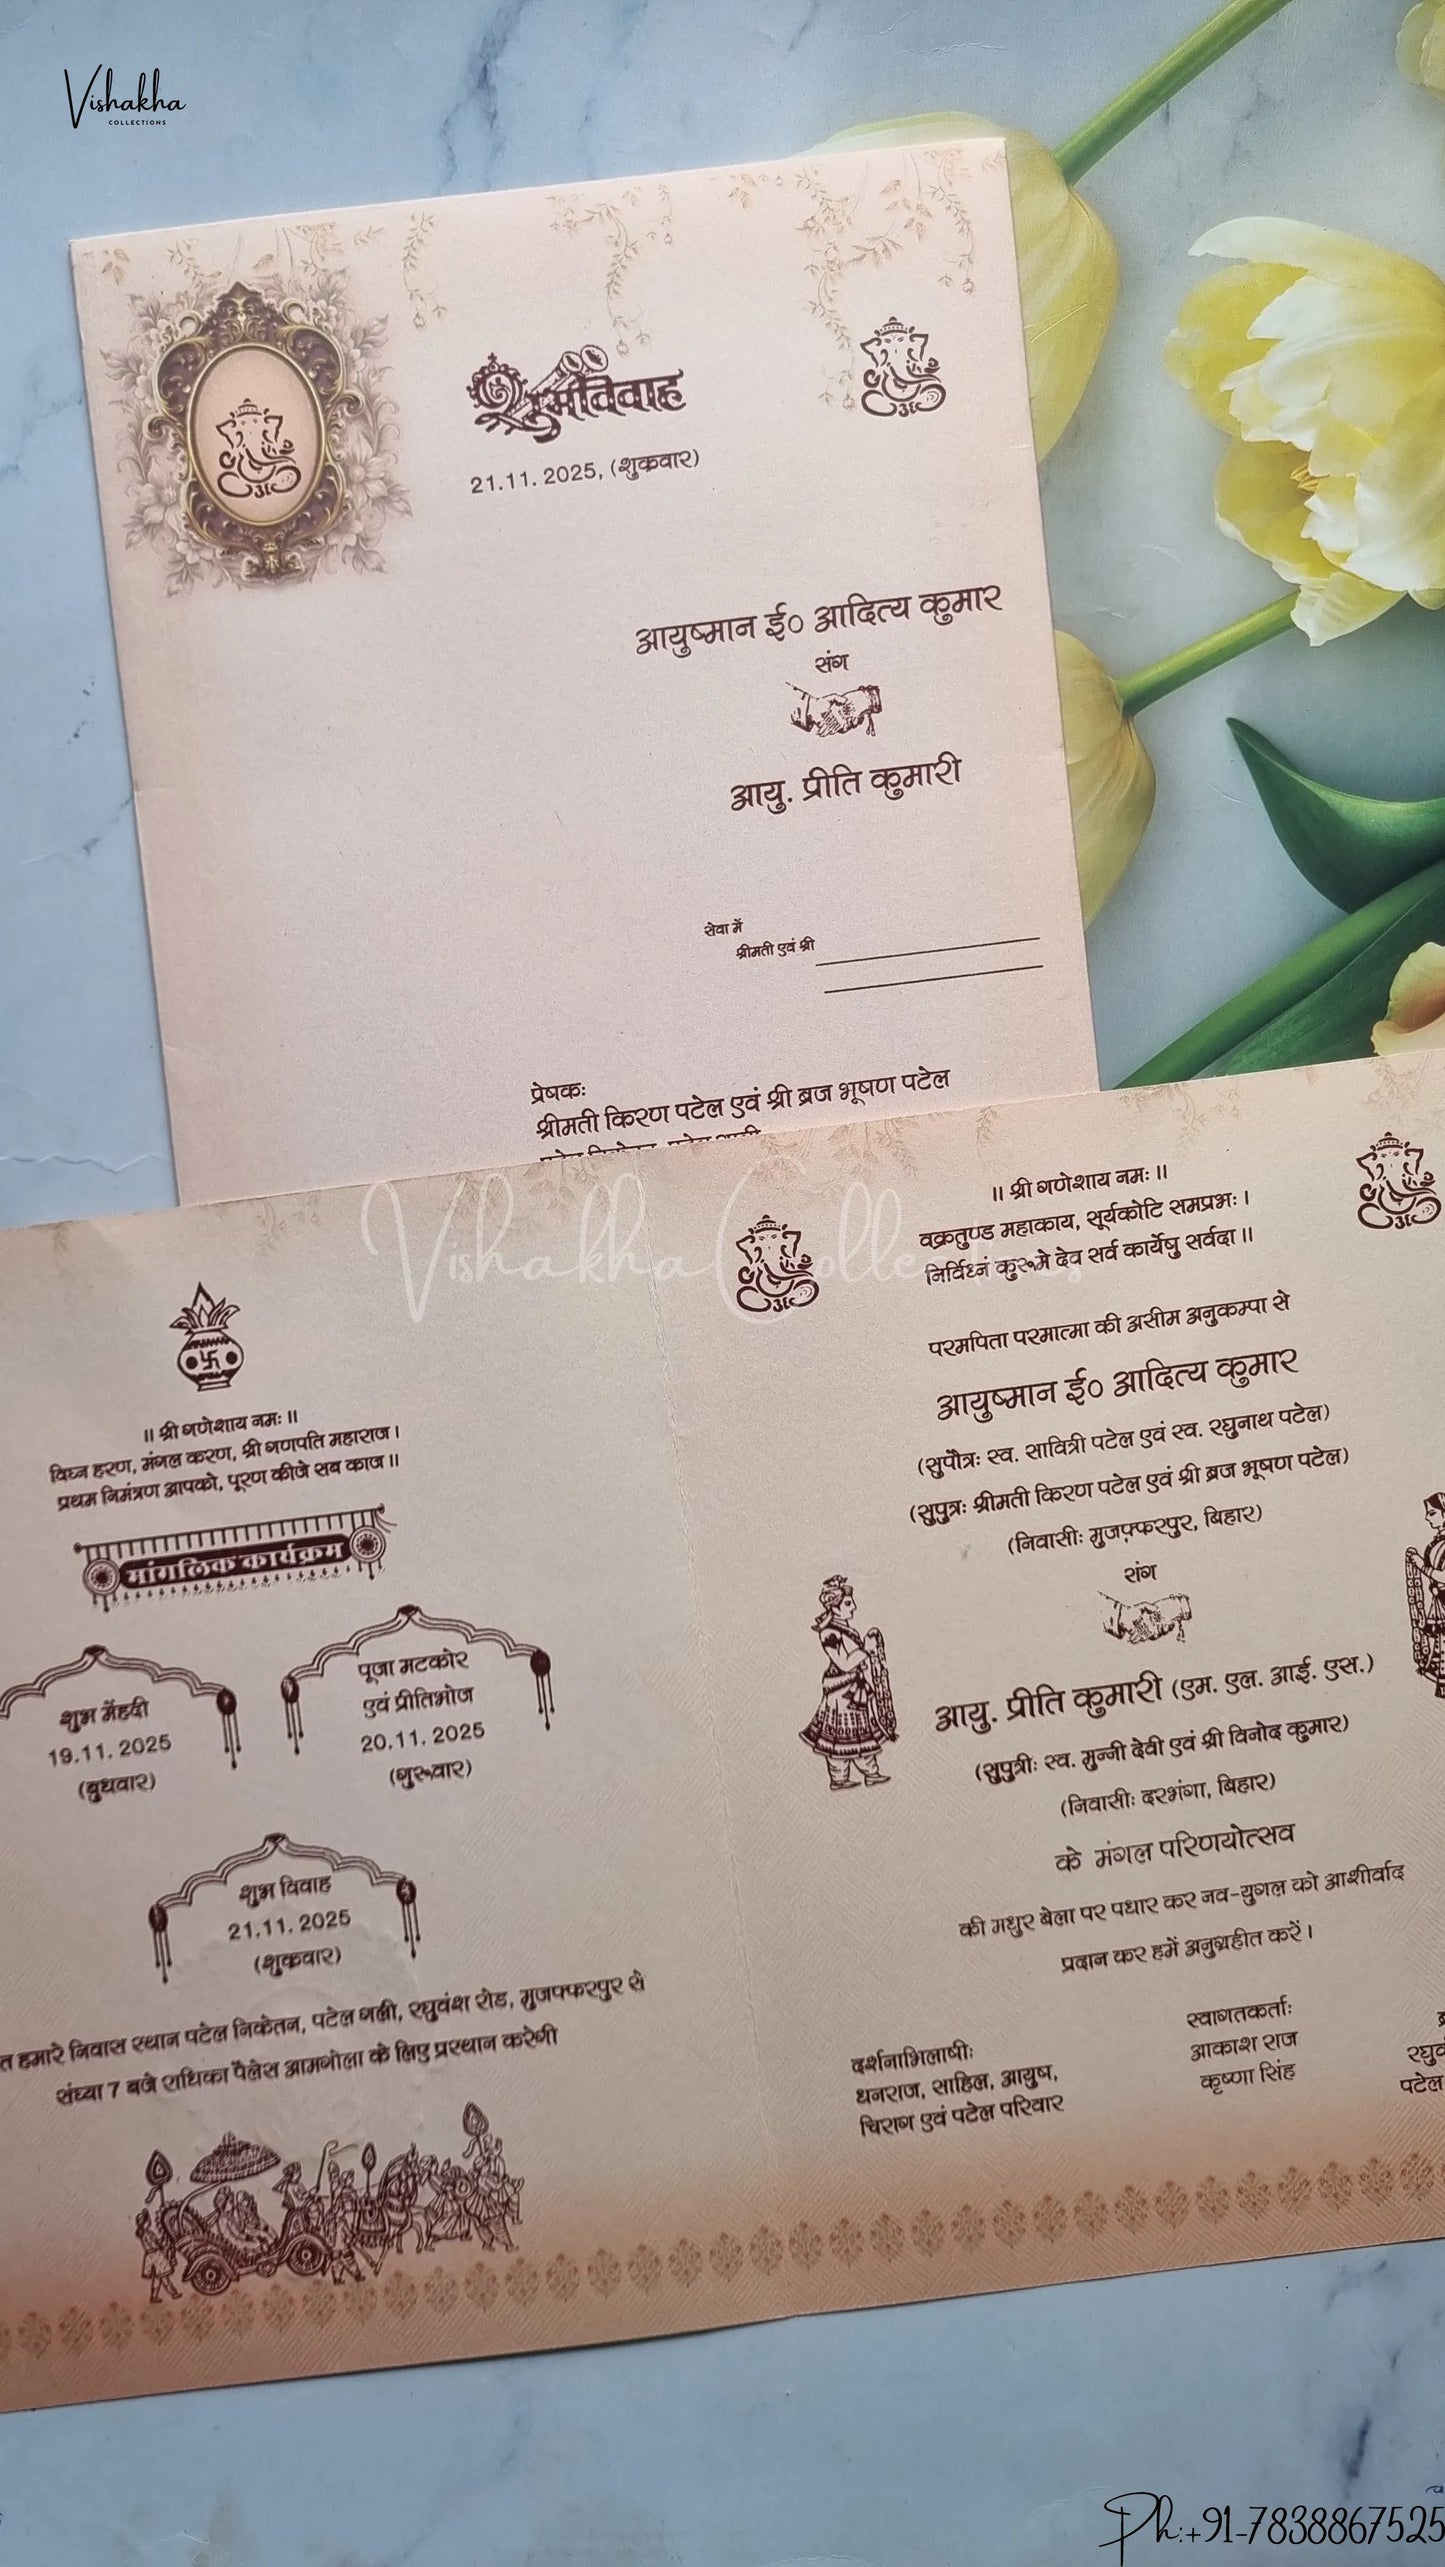 Vishakha
COLLECTIONS
शुभविवाह
21.11.2025, (शुक्रवार)
आयुष्मान ई० आदित्य कुमार
संग
आयु. प्रीति कुमारी
सेवा में
श्रीमती एवं श्री
प्रेषक:
श्रीमती किरण पटेल एवं श्री ब्रज भूषण पटेल
Vishakha Collections
॥ श्री गणेशाय नमः ॥
विघ्न हरण, मंगल करण, श्री गणपति महाराज।
प्रथम निमंत्रण आपको, पूरण कीजे सब काज॥
मांगलिक कार्यक्रम
शुभ मेंहदी
19.11.2025
(बुधवार)
पूजा मटकोर
एवं प्रीतिभोज
20.11.2025
(गुरूवार)
शुभ विवाह
21.11.2025
(शुक्रवार)
हमारे निवास स्थान पटेल निकेतन, पटेल गली, रघुवंश रोड, मुजफ्फरपुर से
संध्या 7 बजे राधिका पैलेस आमगोला के लिए प्रस्थान करेगी
॥ श्री गणेशाय नमः ॥
वक्रतुण्ड महाकाय, सूर्यकोटि समप्रभः।
निर्विघ्नं कुरूमे देव सर्व कार्येषु सर्वदा॥
परमपिता परमात्मा की असीम अनुकम्पा से
आयुष्मान ई० आदित्य कुमार
(सुपौत्रः स्व. सावित्री पटेल एवं स्व. रघुनाथ पटेल)
(सुपुत्रः श्रीमती किरण पटेल एवं श्री ब्रज भूषण पटेल)
(निवासीः मुजफ़्फरपुर, बिहार)
संग
आयु. प्रीति कुमारी (एम. एल. आई. एस.)
(सुपुत्रीः स्व. मुन्नी देवी एवं श्री विनोद कुमार)
(निवासीः दरभंगा, बिहार)
के मंगल परिणयोत्सव
की मधुर बेला पर पधार कर नव-युगल को आशीर्वाद
प्रदान कर हमें अनुग्रहीत करें।
दर्शनाभिलाषीः
धनराज, साहिल, आयुष,
चिराग एवं पटेल परिवार
स्वागतकर्ताः
आकाश राज
कृष्णा सिंह
पटेल
Ph:+91-7838867525